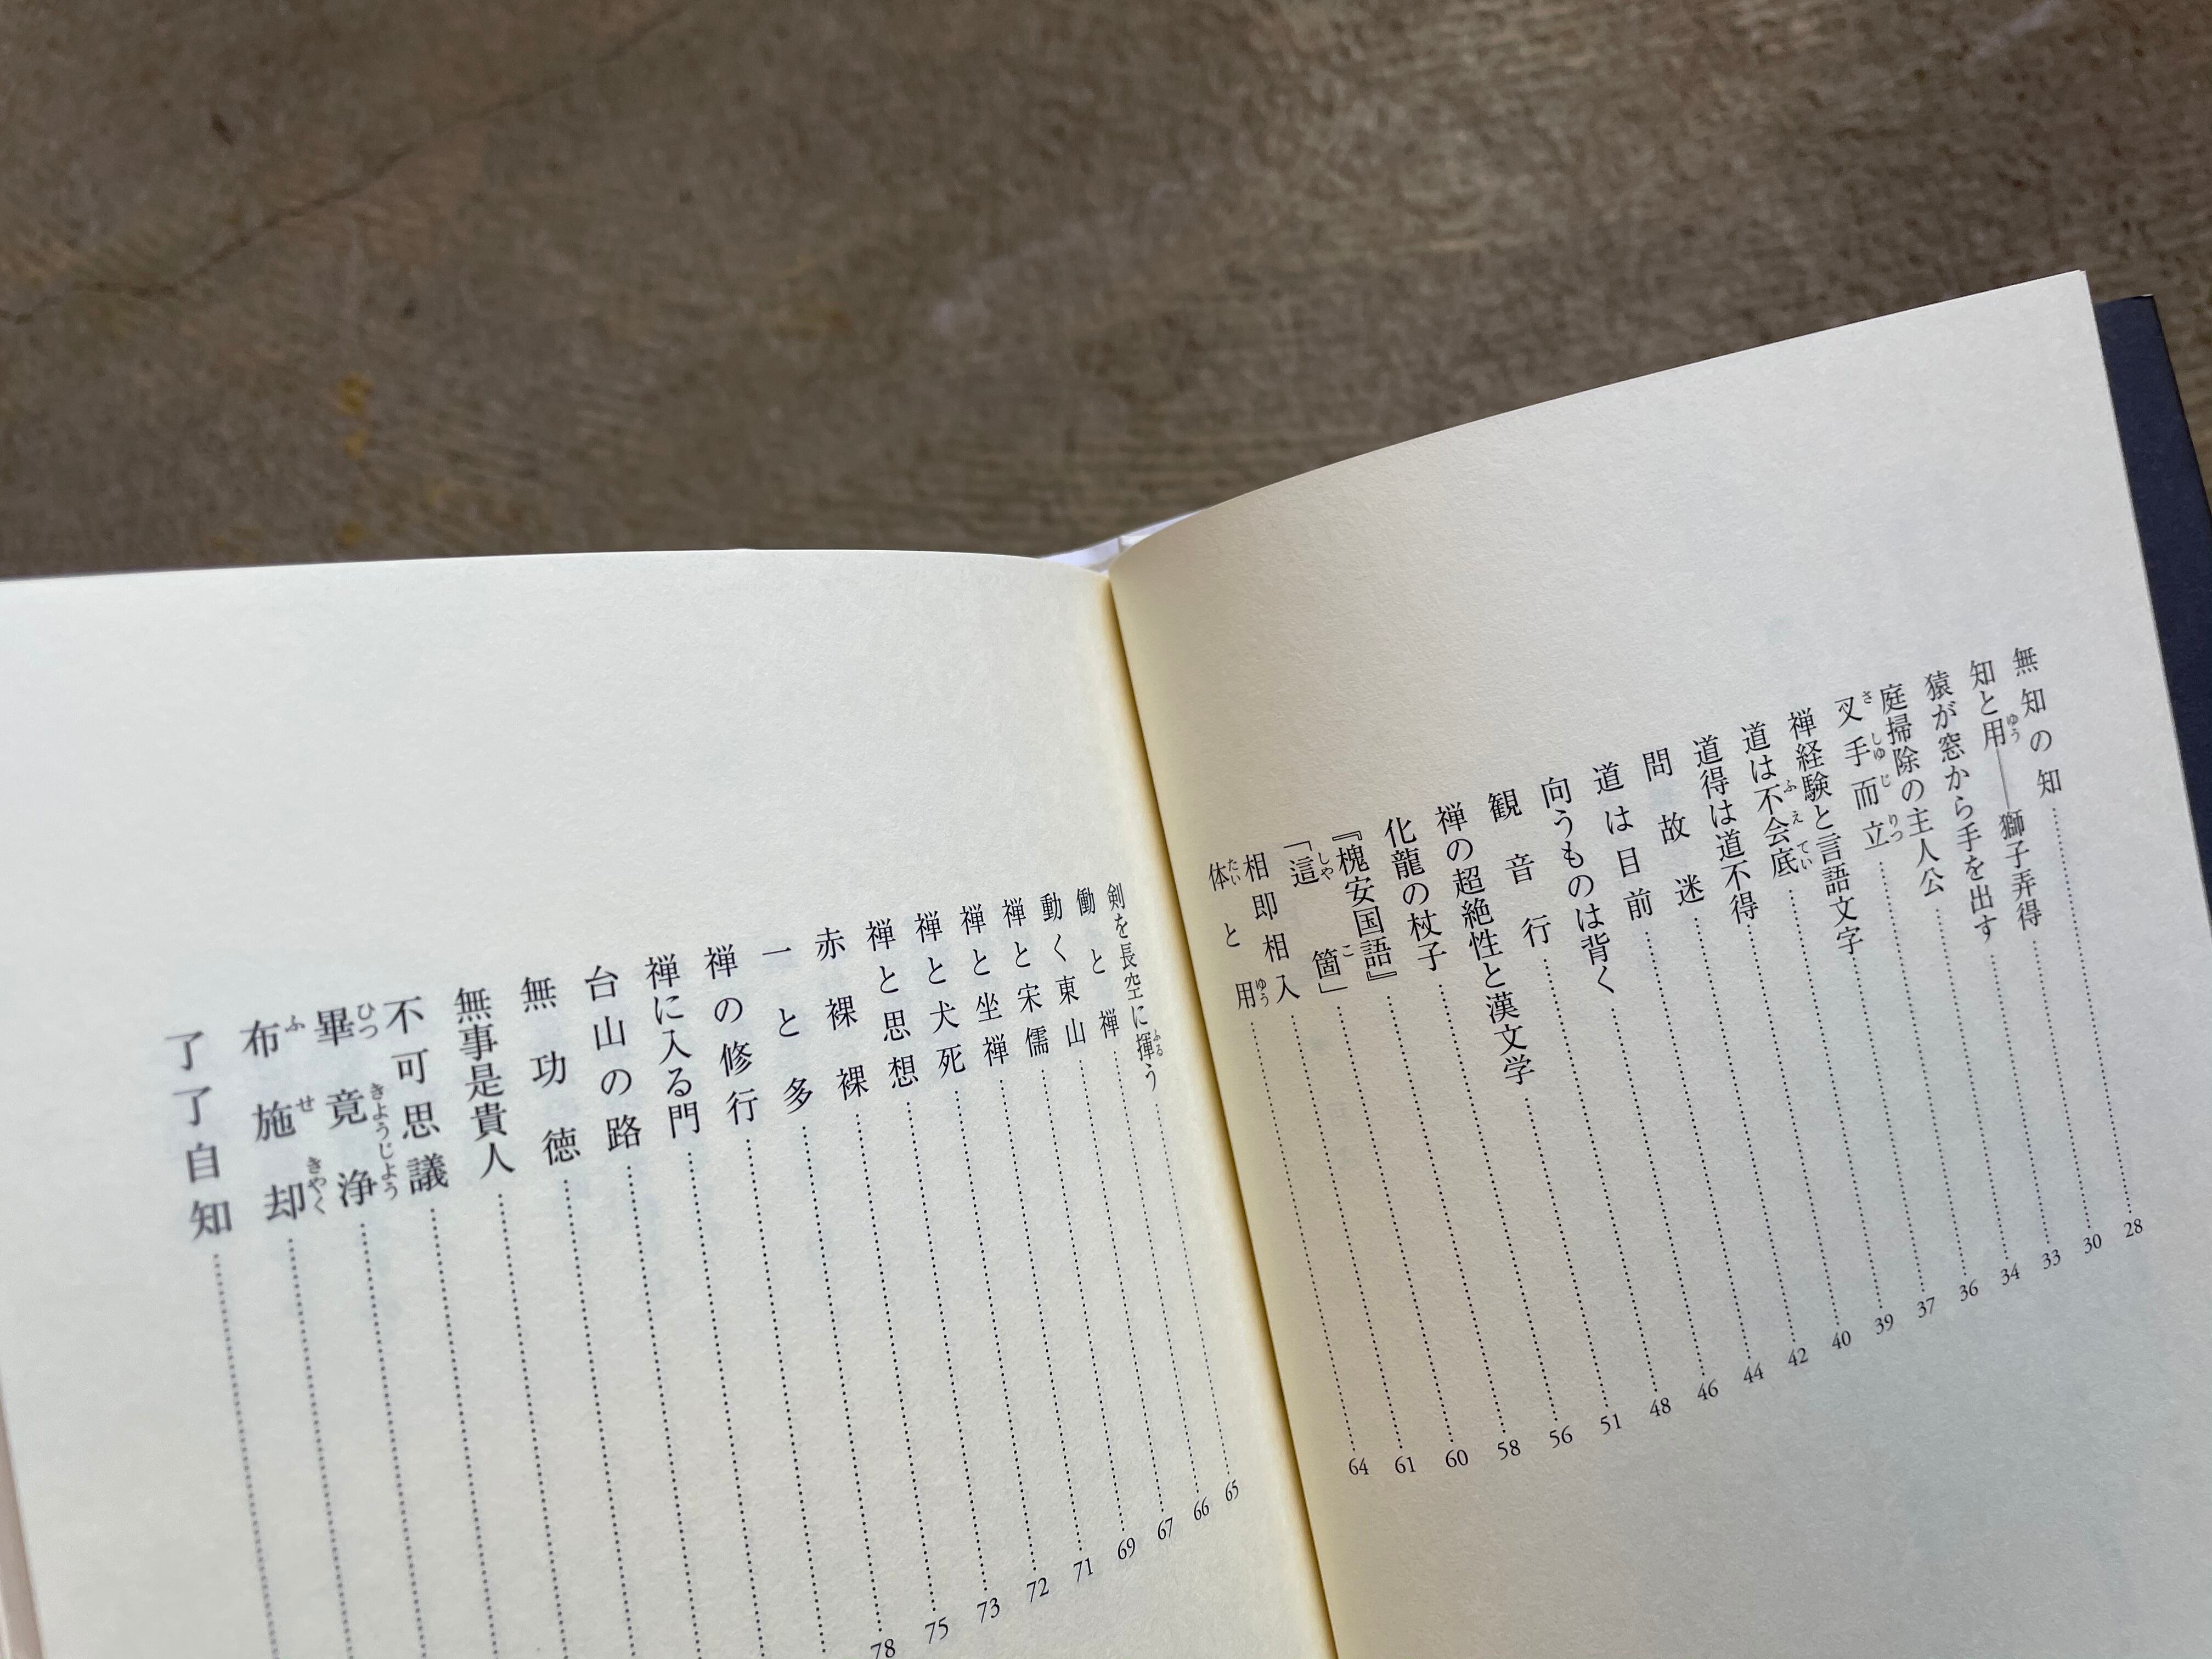 無知の知 28
知と用――獅子弄得 30
猿が窓から手を出す 33
庭掃除の主人公 34
叉手而立 36
禅経験と言語文字 37
道は不会底 39
道得は道不得 40
問故迷 42
道は目前 44
向うものは背く 46
観音行 48
禅の超絶性と漢文学 51
化龍の杖子 56
『槐安国語』 58
「這箇」 60
相即相入 61
体と用 64
剣を長空に揮う 65
働と禅 66
動く東山 67
禅と宋儒 69
禅と坐禅 71
禅と犬死 72
禅と思想 73
赤裸裸 75
一と多 78
禅の修行
禅に入る門
台山の路
無功徳
無事是貴人
不可思議
畢竟浄
布施却
了了自知